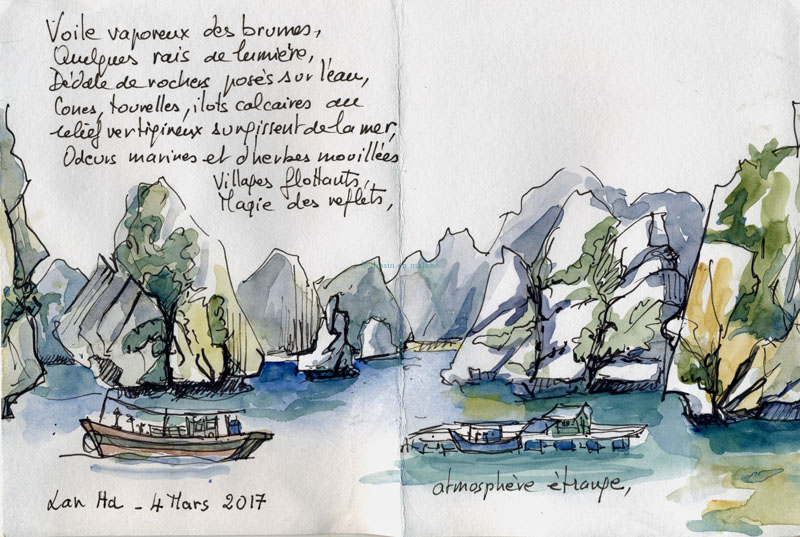 Voile vaporeux des brumes,
Quelques rais de lumière,
Dédale de rochers posés sur l'eau,
Cones, tourelles, ilots calcaires au
relief vertigineux surgissent de la mer,
Odeurs marines et d'herbes mouillées
Villages flottants,
Magie des reflets,
atmosphère étrange,
Lan Ha - 4 Mars 2017